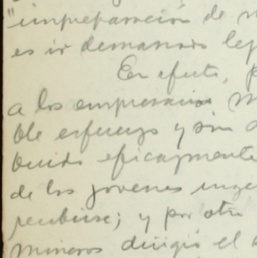 "impreparación de
es ir demasiado le
En efecto,
a los empresarios
ble esfuerzo y sin
buido eficazmente
de los jovenes inge
recibirse; y por otro
mineros dirigió el